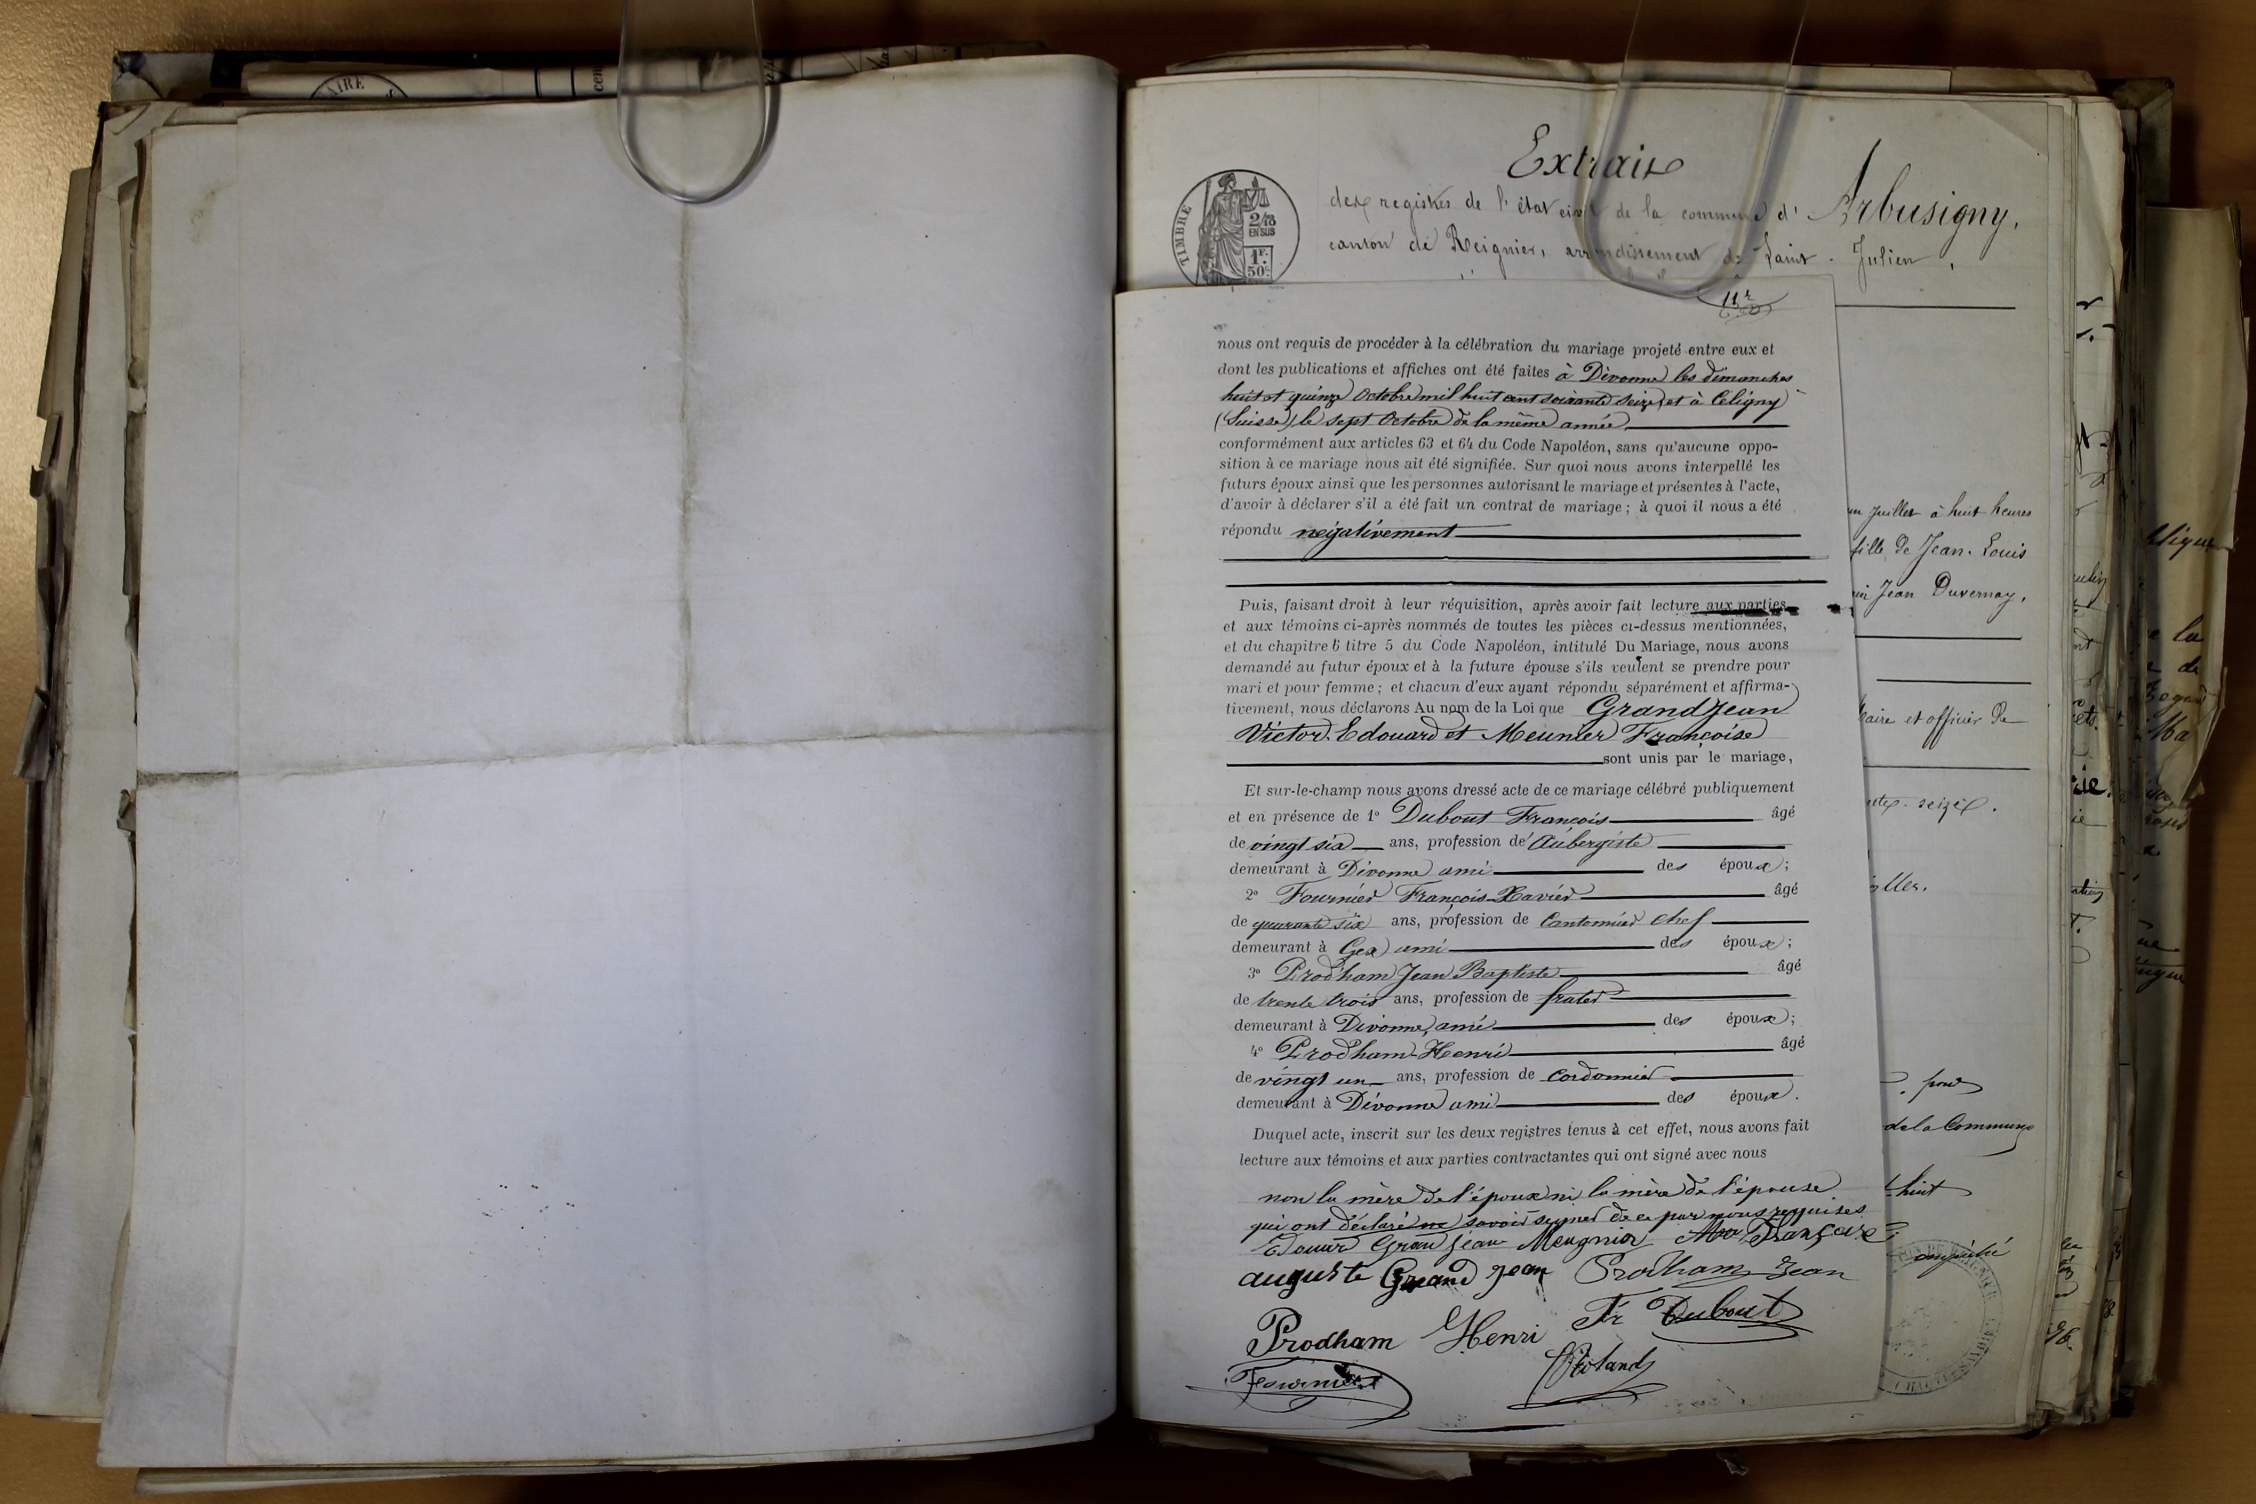 AIRE
cen
Extrait
des registres de l'état civil de la commune d'Arbusigny,
canton de Reignier, arrondissement de Saint-Julien,
TIMBRE
2/10
EN SUS
1F.
50c
11e
nous ont requis de procéder à la célébration du mariage projeté entre eux et
dont les publications et affiches ont été faites à Divonne les dimanches
huit et quinze Octobre mil huit cent soixante seize, et à Céligny
(Suisse), le sept Octobre de la même année
conformément aux articles 63 et 64 du Code Napoléon, sans qu'aucune oppo-
sition à ce mariage nous ait été signifiée. Sur quoi nous avons interpellé les
futurs époux ainsi que les personnes autorisant le mariage et présentes à l'acte,
d'avoir à déclarer s'il a été fait un contrat de mariage ; à quoi il nous a été
répondu négativement
Puis, faisant droit à leur réquisition, après avoir fait lecture aux parties
et aux témoins ci-après nommés de toutes les pièces ci-dessus mentionnées,
et du chapitre 6 titre 5 du Code Napoléon, intitulé Du Mariage, nous avons
demandé au futur époux et à la future épouse s'ils veulent se prendre pour
mari et pour femme ; et chacun d'eux ayant répondu séparément et affirma-
tivement, nous déclarons Au nom de la Loi que Grandjean
Victor Edouard et Meunier Françoise
sont unis par le mariage,
Et sur-le-champ nous avons dressé acte de ce mariage célébré publiquement
et en présence de 1° Dubout François âgé
de vingt six ans, profession de Aubergiste
demeurant à Divonne ami des époux ;
2° Fournier François-Xavier âgé
de quarante six ans, profession de Cantonnier chef
demeurant à Gex ami des époux ;
3° Prodham Jean Baptiste âgé
de trente trois ans, profession de frater
demeurant à Divonne, ami des époux ;
4° Prodham Henri âgé
de vingt un ans, profession de Cordonnier
demeurant à Divonne ami des époux.
Duquel acte, inscrit sur les deux registres tenus à cet effet, nous avons fait
lecture aux témoins et aux parties contractantes qui ont signé avec nous
non la mère de l'époux ni la mère de l'épouse
qui ont déclaré ne savoir signer de ce par nous requises
Edouard Grandjean Meugnier Françoise
auguste Grand jean Prodham Jean
Prodham Henri Fr Dubout
Fournier Roland
juillet à huit heures
fille de Jean-Louis
Jean Duvernay,
maire et officier de
seize.
pour
de la Commune
huit
empêché